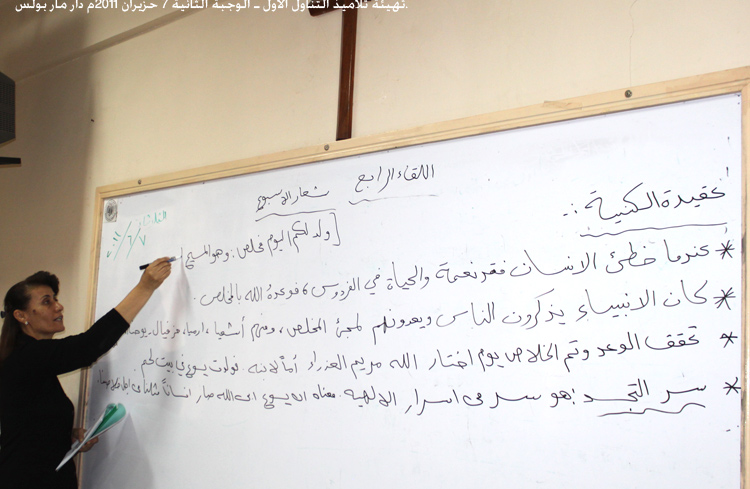 تهيئة تلاميذ التناول الاول ـ الوجبة الثانية 7 حزيران 2011م دار مار بولس.
اللقاء الرابع
شعار الاسبوع
الثلاثاء
٧/٦/
[ولد لكم اليوم مخلص: وهو المسيح]
عقيدة الكنيسة :-
* عندما خطئ الانسان فقد نعمة والحياة في الفردوس، فوعدهُ الله بالمخلص.
* كان الانبياء يذكرون الناس ويعدونهم لمجئ المخلص، ومنهم أشعيا، ارميا، حزقيال
* تحقق الوعد وتم الخلاص يوم اختار الله مريم العذراء أماً لابنه. فولدت يسوع في بيت لحم
* سر التجسد: هو سر من اسرار الالهية. معناه ان يسوع ابن الله صار انساناً مثلنا من اجل خلاصنا.